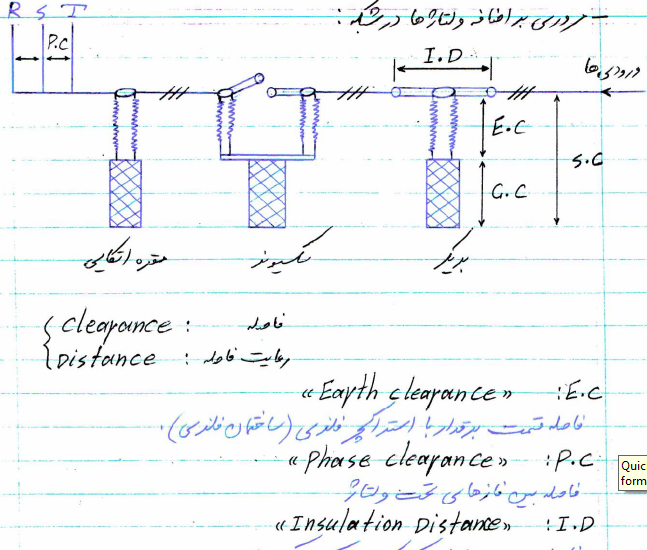 - مروری بر اضافه ولتاژها در شبکه :
R S T
P.C
I.D
ورودی ها
E.C
S.C
G.C
مقره اتکایی
سکسیونر
بریکر
Clearance : فاصله
Distance : رعایت فاصله
« Earth clearance » : E.C
فاصله قسمت برقدار با استراکچر فلزی (ساختمان فلزی).
« Phase clearance » : P.C
فاصله بین فازهای تحت ولتاژ
« Insulation Distance » : I.D
Quic
form